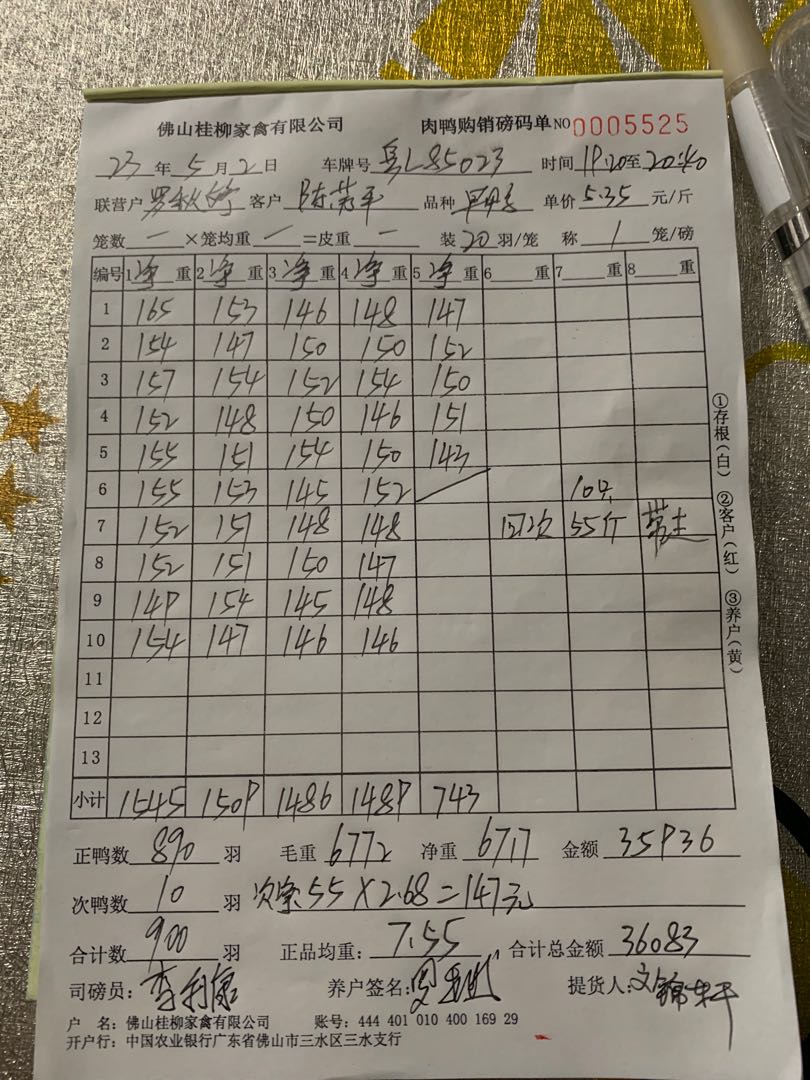 佛山桂柳家禽有限公司 肉鸭购销磅码单 NO 0005525
23年5月2日 车牌号 粤L85023 时间 19:20至20:40
联营户 客户 陈荣平 品种 单价 5.35 元/斤
笼数 一 ×笼均重 一 =皮重 一 装 20 羽/笼 称 1 笼/磅
编号 1 净 重 2 净 重 3 净 重 4 净 重 5 净 重 6 重 7 重 8 重
1 165 153 146 148 147
2 154 147 150 150 152
3 157 154 152 154 150
4 152 148 150 146 151
5 155 151 154 150 143
6 155 153 145 152 10只
7 152 151 148 148 55斤
8 152 151 150 147
9 149 154 145 148
10 154 147 146 146
11
12
13
小计 1545 1509 1486 1489 743
正鸭数 890 羽 毛重 6772 净重 6717 金额 35936
次鸭数 10 羽 55×2.68=147元
合计数 900 羽 正品均重: 7.55 合计总金额 36083
司磅员: 李利康 养户签名: 提货人:
户 名: 佛山桂柳家禽有限公司 账号: 444 401 010 400 169 29
开户行: 中国农业银行广东省佛山市三水区三水支行
①存根(白) ②客户(红) ③养户(黄)